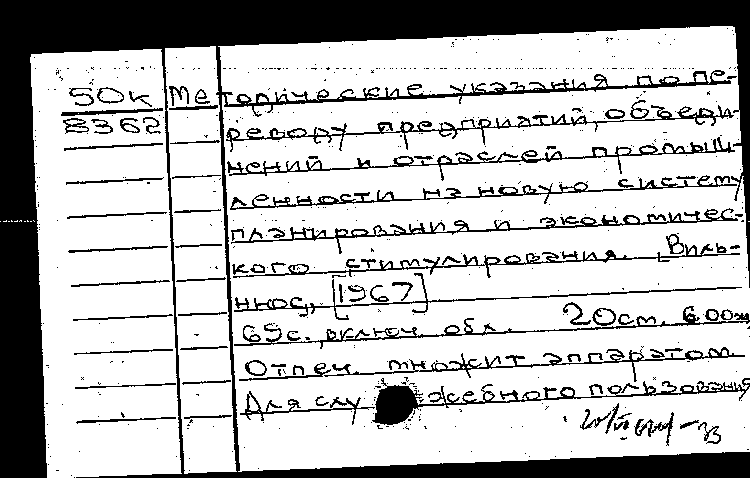 50к Методические указания по пе-
8362 реводу предприятий, объеди-
нений и отраслей промыш-
ленности на новую систему
планирования и экономичес-
кого стимулирования. Виль-
нюс, [1967]
69с. включ обл. 20см. 600 экз
Отпеч. множит аппаратом
Для служебного пользования